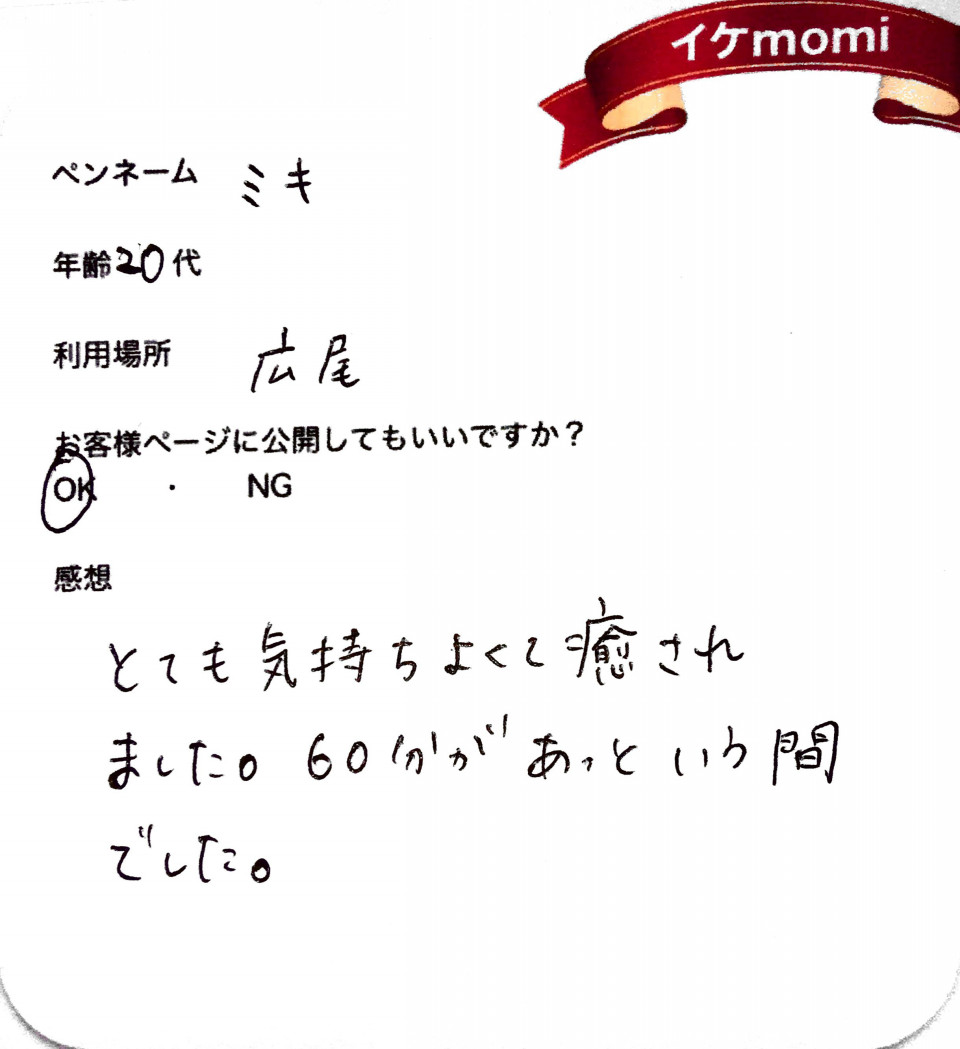 イケmomi
ペンネーム ミキ
年齢20代
利用場所 広尾
お客様ページに公開してもいいですか？
OK ・ NG
感想
とても気持ちよくて癒され
ました。60分があっという間
でした。